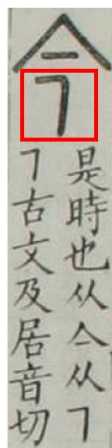 今
是時也从亼从㇕
㇕古文及居音切